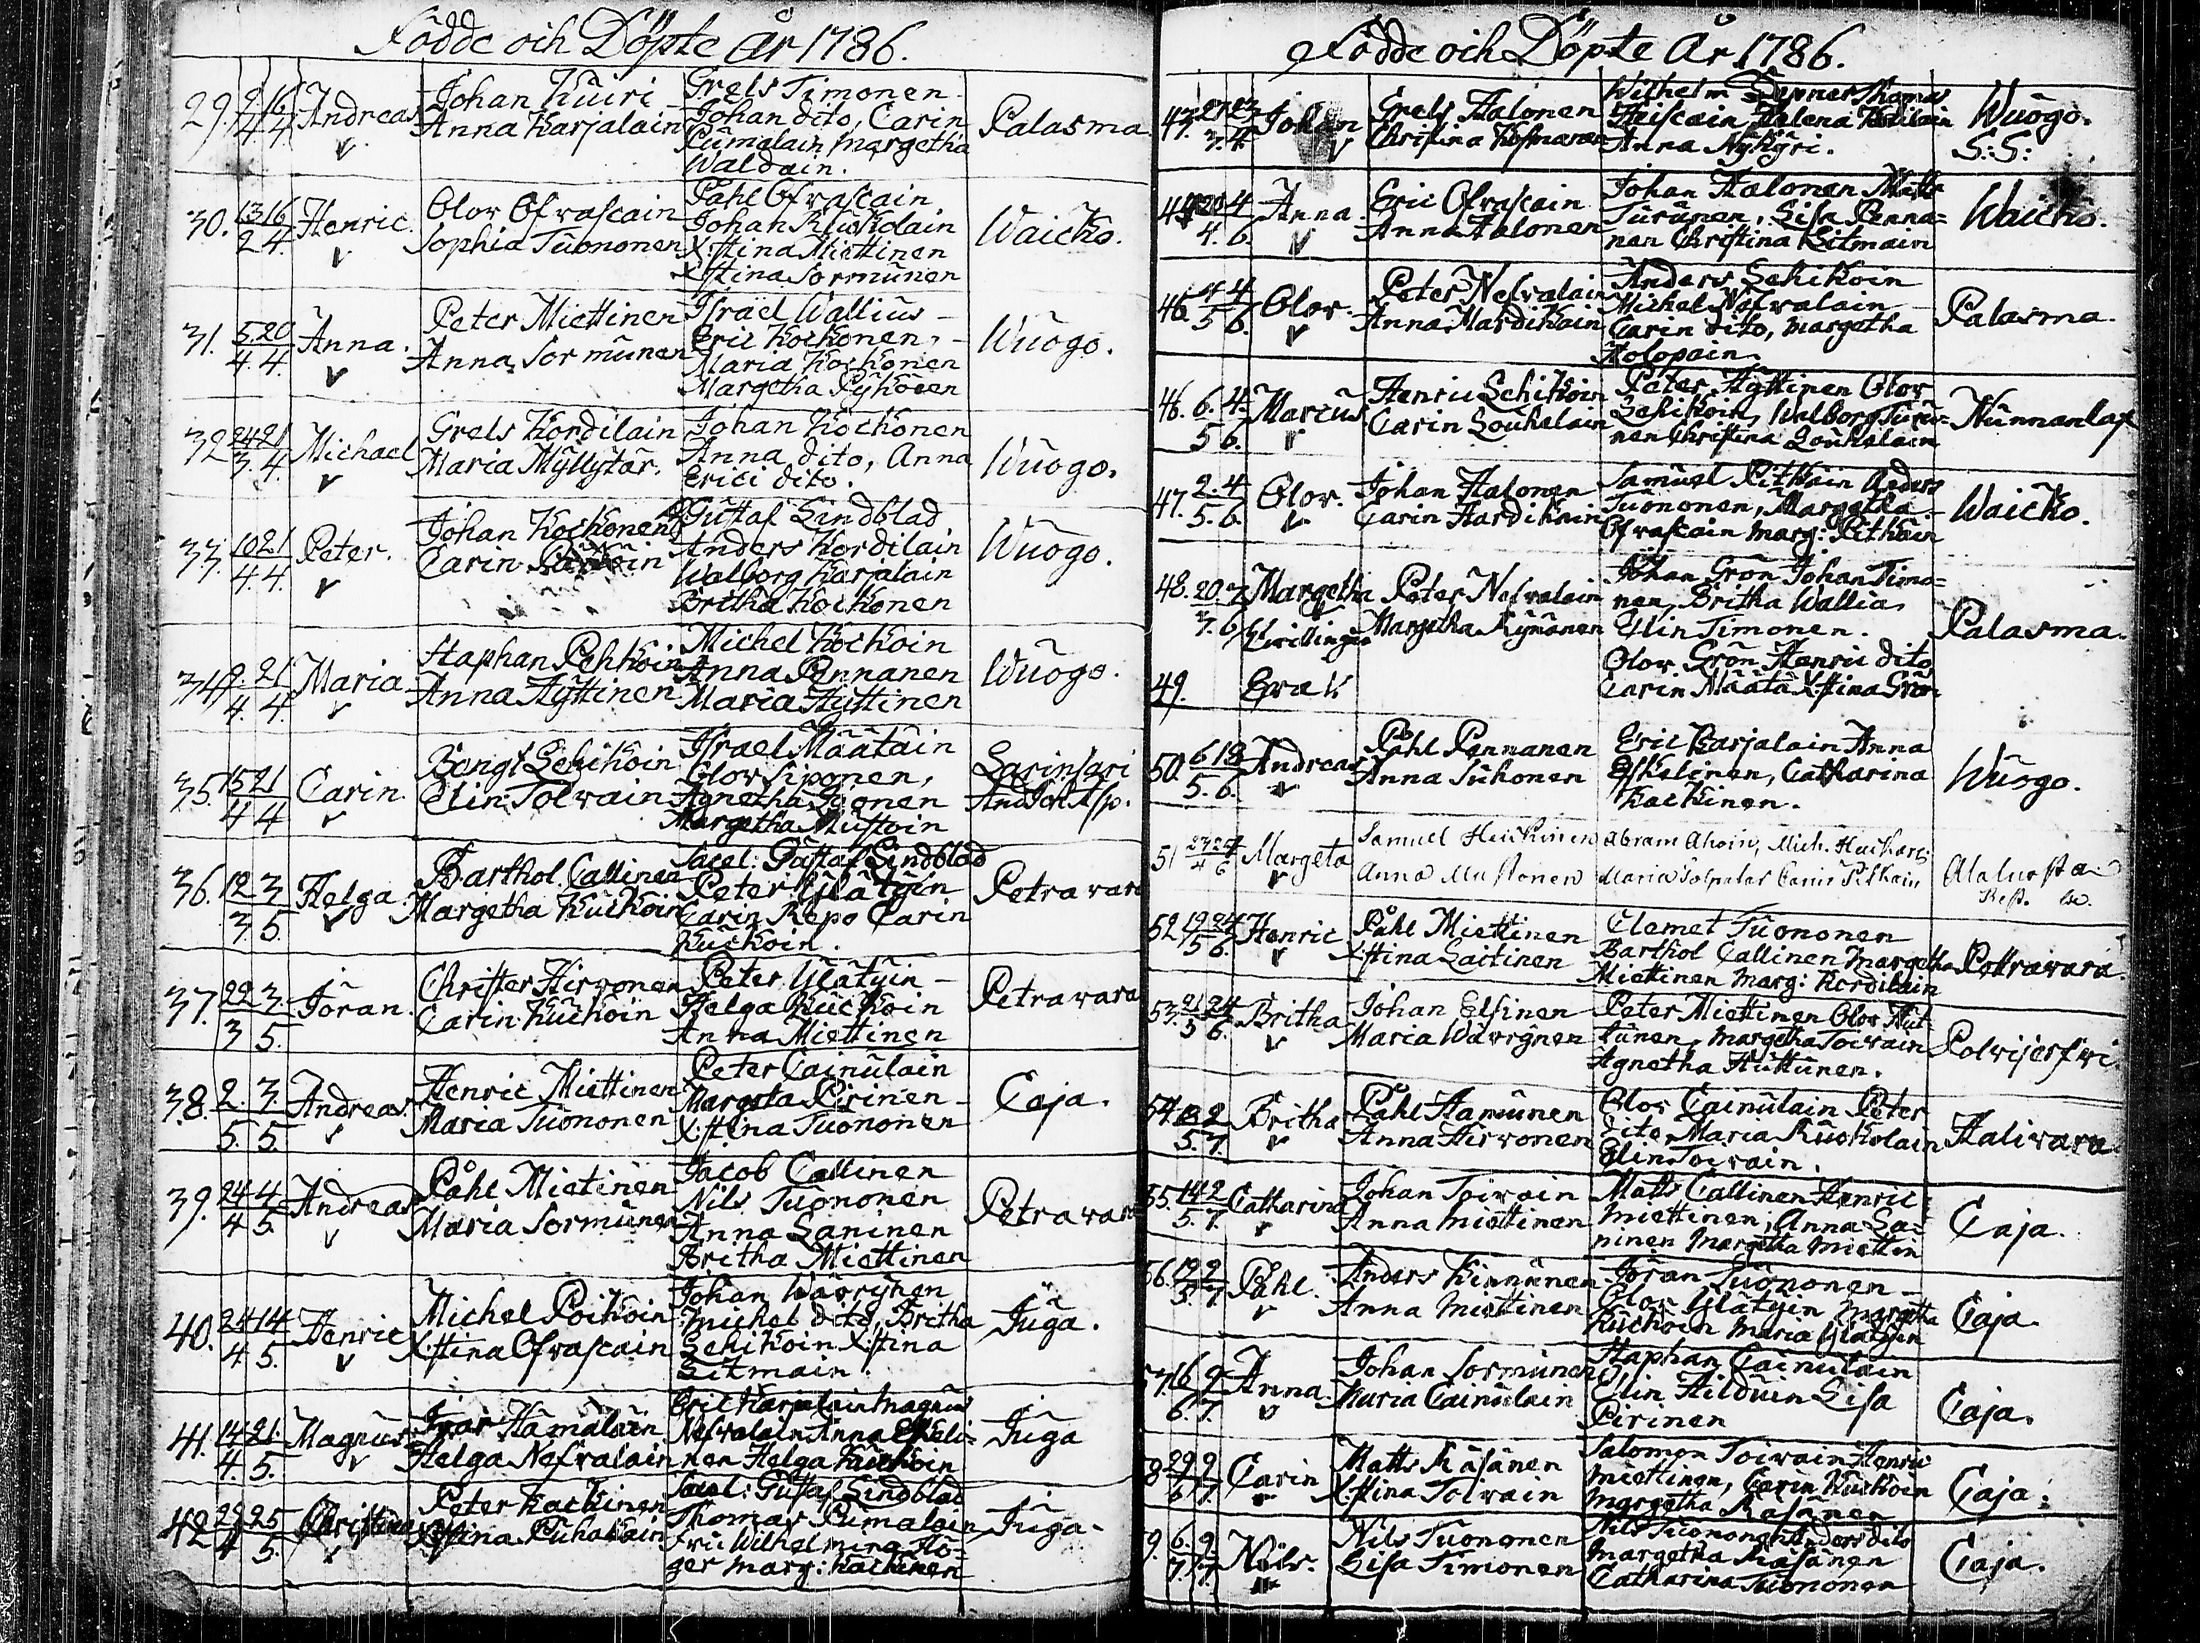 Födde och Döpte År 1786.
29. 9/4 16/4 Andreas Johan Kuiri Grels Timonen
Anna Karjalain Johan dito, Carin Palasma
Pumalain Margetha
Waldain.
30. 13/2 16/4 Henric. Olov Ofvascain Påhl Ofvascain
Sophia Tuononen Johan Ruokolain Waicko.
X:stina Miettinen
X:stina Sormunen
31. 5/4 20/4 Anna. Peter Miettinen Israel Wallius
Anna Sormunen Eric Kockonen, Wuogo.
Maria Kockonen
Margetha Pykören
32 24/3 21/4 Michael Grels Kordilain Johan Kockonen
Maria Myllytar. Anna dito, Anna Wuogo.
Erici dito.
33. 10/4 21/4 Peter. Johan Kockonen Gustaf Lindblad
Carin Anders Kordilain Wuogo.
Walborg Karjalain
Britha Kockonen
34 9/4 21/4 Maria Staphan Pehkoin Michel Kockoin
Anna Hyttinen Anna Pennanen Wuogo.
Maria Hyttinen
35. 15/4 21/4 Carin. Bengt Lehikoin Israel Määtäin Larinsari
Elin Toivain Olov Siponen, And. Sok. Asp.
Agnetha Siponen
Margetha Mustoin
36. 12/3 3/5 Helga Barthol. Callinen Sacel: Gustaf Lindblad
Margetha Kuckoin Peter Ylätyin Petravara
Carin Repo Carin
Kuckoin.
37. 22/3 3/5 Jöran. Christer Hirvonen Peter Ylätyin
Carin Kuckoin Helga Kuckoin Petravara
Anna Miettinen
38. 2/5 3/5 Andreas Henric Miettinen Peter Cainulain
Maria Tuononen Margeta Pirinen Caja.
X:stina Tuononen
39. 24/4 4/5 Andreas Påhl Mietinen Jacob Callinen
Maria Sormunen Nils Tuononen Petravara
Anna Laninen
Britha Miettinen
40. 24/4 14/5 Henric Michel Poikoin Johan Wävrynen
X:stina Ofvascain Michel dito, Britha Juga.
Lehikoin X:stina
Litmain.
41. 14/4 21/5 Magnus Ivar Hämäläin Eric Karjalain Magnus
Helga Nefvalain Nefvalain Anna Eskeli- Juga
nen Helga Kuckoin
42 29/4 25/5 Christina Peter Kackinen Sacel: Gustaf Lindblad
X:stina Puhakain Thomas Pumalain Juga.
Fru Wilhelmina Hö-
ger Marg: Kackinen
Födde och Döpte År 1786.
43. 27/3 23/4 Johan Grels Halonen Wilhelm Thomas
Christina Heiscain Helena Kotilain Wuogo.
Anna Nykyri. S:S:
44 20/4 4/6 Anna. Eric Ofvascain Johan Halonen Matts
Anna Halonen Turunen, Lisa Penna- Waicko.
nen Christina Litmain
45. 4/5 4/6 Olov. Peter Nefvalain Anders Lehikoin
Anna Mardikain Michel Nefvalain Palasma.
Carin dito, Margetha
Holopain.
46. 6/5 4/6 Marcus Henric Lehikoin Peter Hyttinen Olov
Carin Louhelain Lehikoin, Walborg Turu- Nunnanlax
nen Christina Louhelain
47. 2/5 4/6 Olov. Johan Halonen Samuel Pitkäin Anders
Carin Hardikain Tuononen, Margetha Waicko.
Ofvascain Marg: Pitkäin
48. 20/3 7/6 Margetha Peter Nefvalain Johan Grön Johan Timo-
Margetha Kynänen nen, Britha Wallia,
Tvillingar Elin Timonen. Palasma.
49. Eva Olov Grön Henric dito
Carin Määtä X:stina Grön
50. 6/5 18/6 Andreas Påhl Pennanen Eric Karjalain Anna
Anna Suhonen Eskelinen, Catharina Wuogo.
Kackinen.
51 23/4 24/6 Margeta Samuel Heickinen Abram Ahoin, Mich.
Anna Mustonen Maria Carin Pitkäin Alaluosta
52 19/5 24/6 Henric Påhl Miettinen Clemet Tuononen
X:stina Laitinen Barthol Callinen Margetha Pettravara.
Miettinen Marg: Kordilain
53. 21/5 24/6 Britha Johan Elfinen Peter Miettinen Olov Hut-
Maria Wävrynen tunen, Margetha Toivain Polvijerfvi.
Agnetha Huttunen.
54. 13/5 2/7 Britha Påhl Hamunen Olov Cainulain Peter
Anna Hirvonen dito Maria Ruokolain Halivara
Elin Toivain.
55. 14/5 2/7 Catharina Johan Toivain Matts Callinen Henric
Anna Miettinen Miettinen, Anna La- Caja.
ninen Margetha Miettin
56. 19/5 2/7 Påhl. Anders Kinnunen Jöran Tuononen
Anna Miettinen Olov Ylätyin Margetha Caja.
Kuckoin Maria Ylätyin
57. 16/6 9/7 Anna. Johan Sormunen Staphan Cainulain
Maria Cainulain Elin Hilduin Lisa Caja.
Pirinen
58 29/6 9/7 Carin Matts Räsänen Salomon Toivain Henric
X:stina Toivain Miettinen, Carin Kuckoin Caja.
Margetha Räsänen
59. 6/7 9/7 Nils. Nils Tuononen Nils Tuononen Anders dito
Lisa Timonen Margetha Räsänen Caja.
Catharina Tuononen